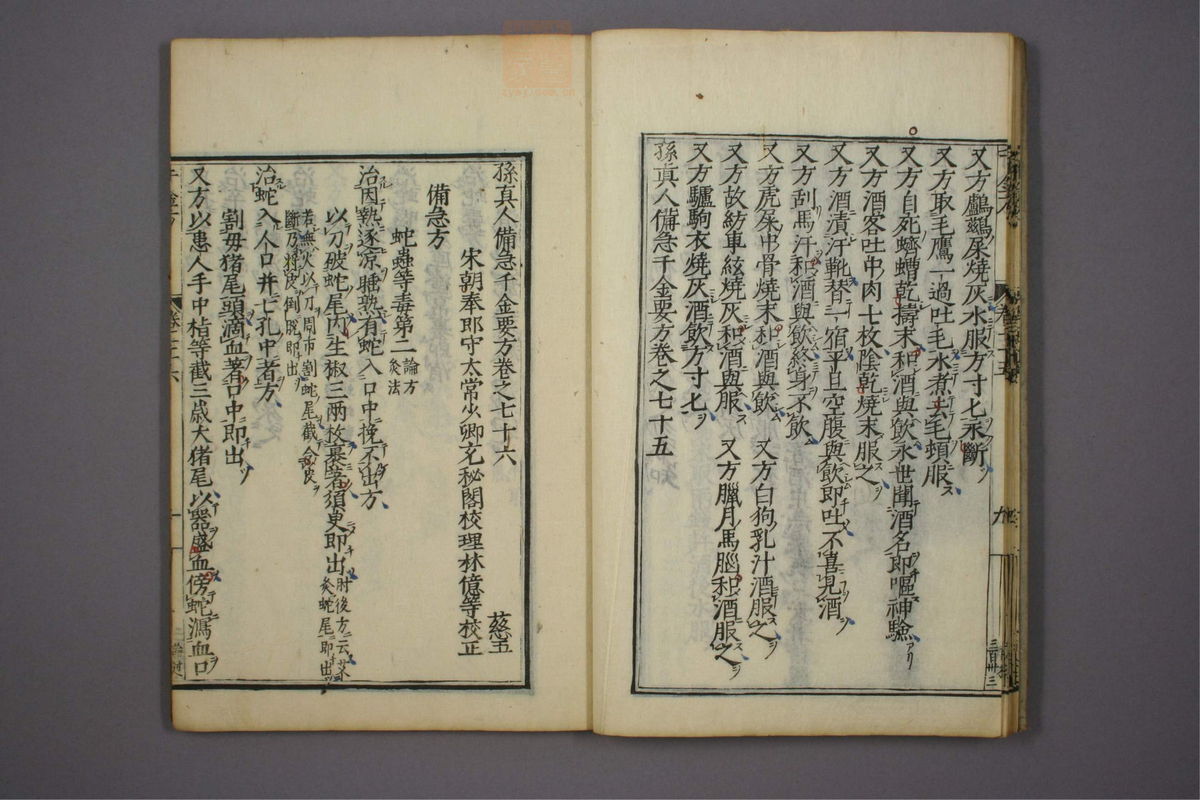 又方鸕鷀屎燒灰水服方寸匕永斷
又方取毛鷹一過吐毛水煮去毛頓服
又方自死蠐螬乾擣末和酒與飲永世聞酒名即嘔神驗
又方酒客吐中肉七枚陰乾燒末服之
又方酒漬汗靴替一宿平旦空腹與飲即吐不喜見酒
又方刮馬汗和酒與飲終身不飲
又方虎屎中骨燒末和酒與飲 又方白狗乳汁酒服之
又方故紡車絃燒灰和酒與服 又方臘月馬腦和酒服之
又方驢駒衣燒灰酒飲方寸匕
孫真人備急千金要方卷之七十五
九
三百卅三
孫真人備急千金要方卷之七十六 慈五
宋朝奉郎守太常少卿充秘閣校理林億等校正
備急方
蛇蟲等毒第二 論方 灸法
治因熱逐凉睡熟有蛇入口中挽不出方
以刀破蛇尾内生椒三兩枚裹著須臾即出 肘後方云艾灸蛇尾即出
若無火以刀周匝割蛇尾截令皮
斷乃將皮倒脫即出
治蛇入人口并七孔中者方
割母猪尾頭滴血著口中即出
又方以患人手中指等截三歲大猪尾以器盛血傍蛇瀉血口